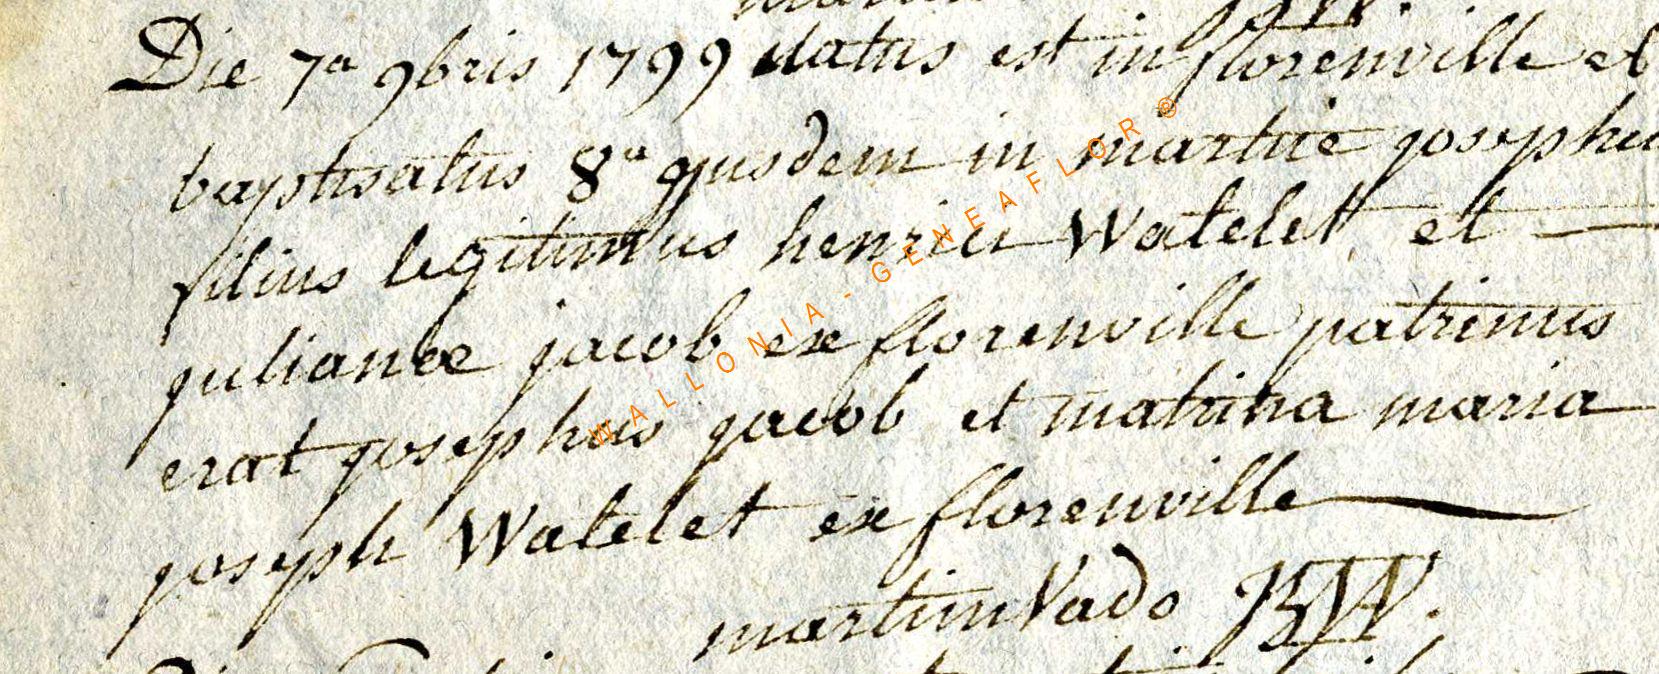 Die 7a 9bris 1799 natus est in florenville et
baptisatus 8a ejusdem in martué josephus
filius legitimus henrici Watelet et
julianae jacob ex florenville patrinus
erat josephus jacob et matrina maria
joseph Watelet ex florenville
martin Vado
WALLONIA - GENEAFLOR ®